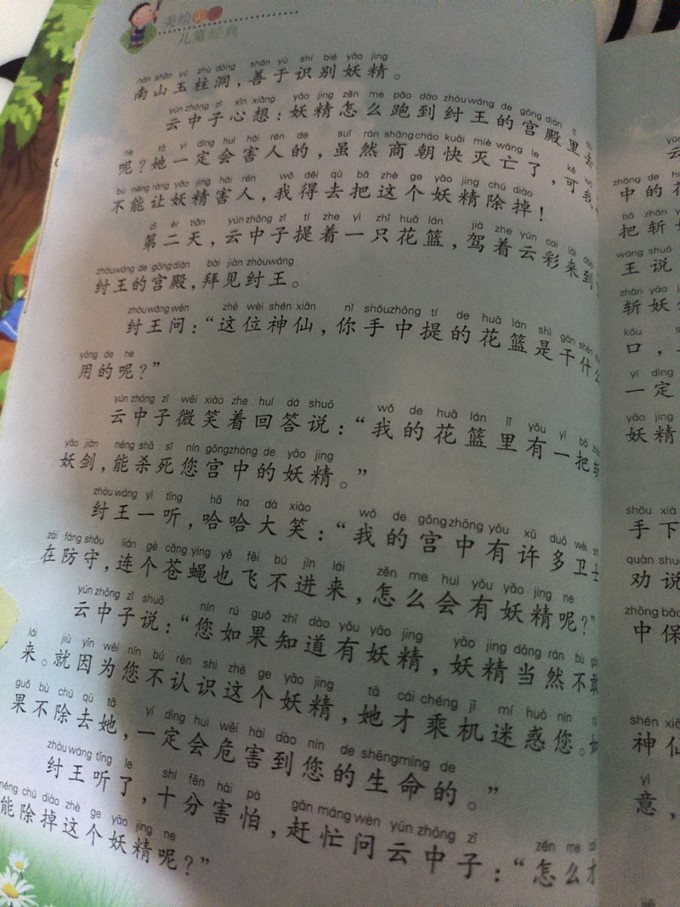 美绘
儿童经典
nán shān yù zhù dòng shàn yú shí bié yāo jing
南山玉柱洞，善于识别妖精。
yún zhōng zǐ xīn xiǎng yāo jing zěn me pǎo dào zhòu wáng de gōng diàn lǐ
云中子心想：妖精怎么跑到纣王的宫殿里去
ne tā yí dìng huì hài rén de suī rán shāng cháo kuài miè wáng le kě
呢？她一定会害人的，虽然商朝快灭亡了，可我
bù néng ràng yāo jing hài rén wǒ děi qù bǎ zhè ge yāo jing chú diào
不能让妖精害人，我得去把这个妖精除掉！
dì èr tiān yún zhōng zǐ tí zhe yì zhī huā lán jià zhe yún cai lái dào
第二天，云中子提着一只花篮，驾着云彩来到
zhòu wáng de gōng diàn bài jiàn zhòu wáng
纣王的宫殿，拜见纣王。
zhòu wáng wèn zhè wèi shén xiān nǐ shǒu zhōng tí de huā lán shì gàn shén
纣王问：“这位神仙，你手中提的花篮是干什么
yòng de ne
用的呢？”
yún zhōng zǐ wēi xiào zhe huí dá shuō wǒ de huā lán lǐ yǒu yì bǎ
云中子微笑着回答说：“我的花篮里有一把斩
yāo jiàn néng shā sǐ nín gōng zhōng de yāo jing
妖剑，能杀死您宫中的妖精。”
zhòu wáng yì tīng hā ha dà xiào wǒ de gōng zhōng yǒu xǔ duō wèi
纣王一听，哈哈大笑：“我的宫中有许多卫士
zài fáng shǒu lián gè cāng ying yě fēi bú jìn lái zěn me huì yǒu yāo jing ne
在防守，连个苍蝇也飞不进来，怎么会有妖精呢？”
yún zhōng zǐ shuō nín rú guǒ zhī dào yǒu yāo jing yāo jing dāng rán bù
云中子说：“您如果知道有妖精，妖精当然不敢
lái jiù yīn wèi nín bú rèn shi zhè ge yāo jing tā cái chéng jī mí huò nín
来。就因为您不认识这个妖精，她才乘机迷惑您。如
guǒ bù chú qù tā yí dìng huì wēi hài dào nín de shēng mìng de
果不除去她，一定会危害到您的生命的。”
zhòu wáng tīng le shí fēn hài pà gǎn máng wèn yún zhōng zǐ zěn me
纣王听了，十分害怕，赶忙问云中子：“怎么才
néng chú diào zhè ge yāo jing ne
能除掉这个妖精呢？”
云
zhōng de
中的花
把斩
wáng shuō
王说
斩妖
kǒu
口，
yí dìng
一定
yāo jing
妖精
shǒu xià
手下
quàn shuō
劝说
中保
神仙
yì
意，